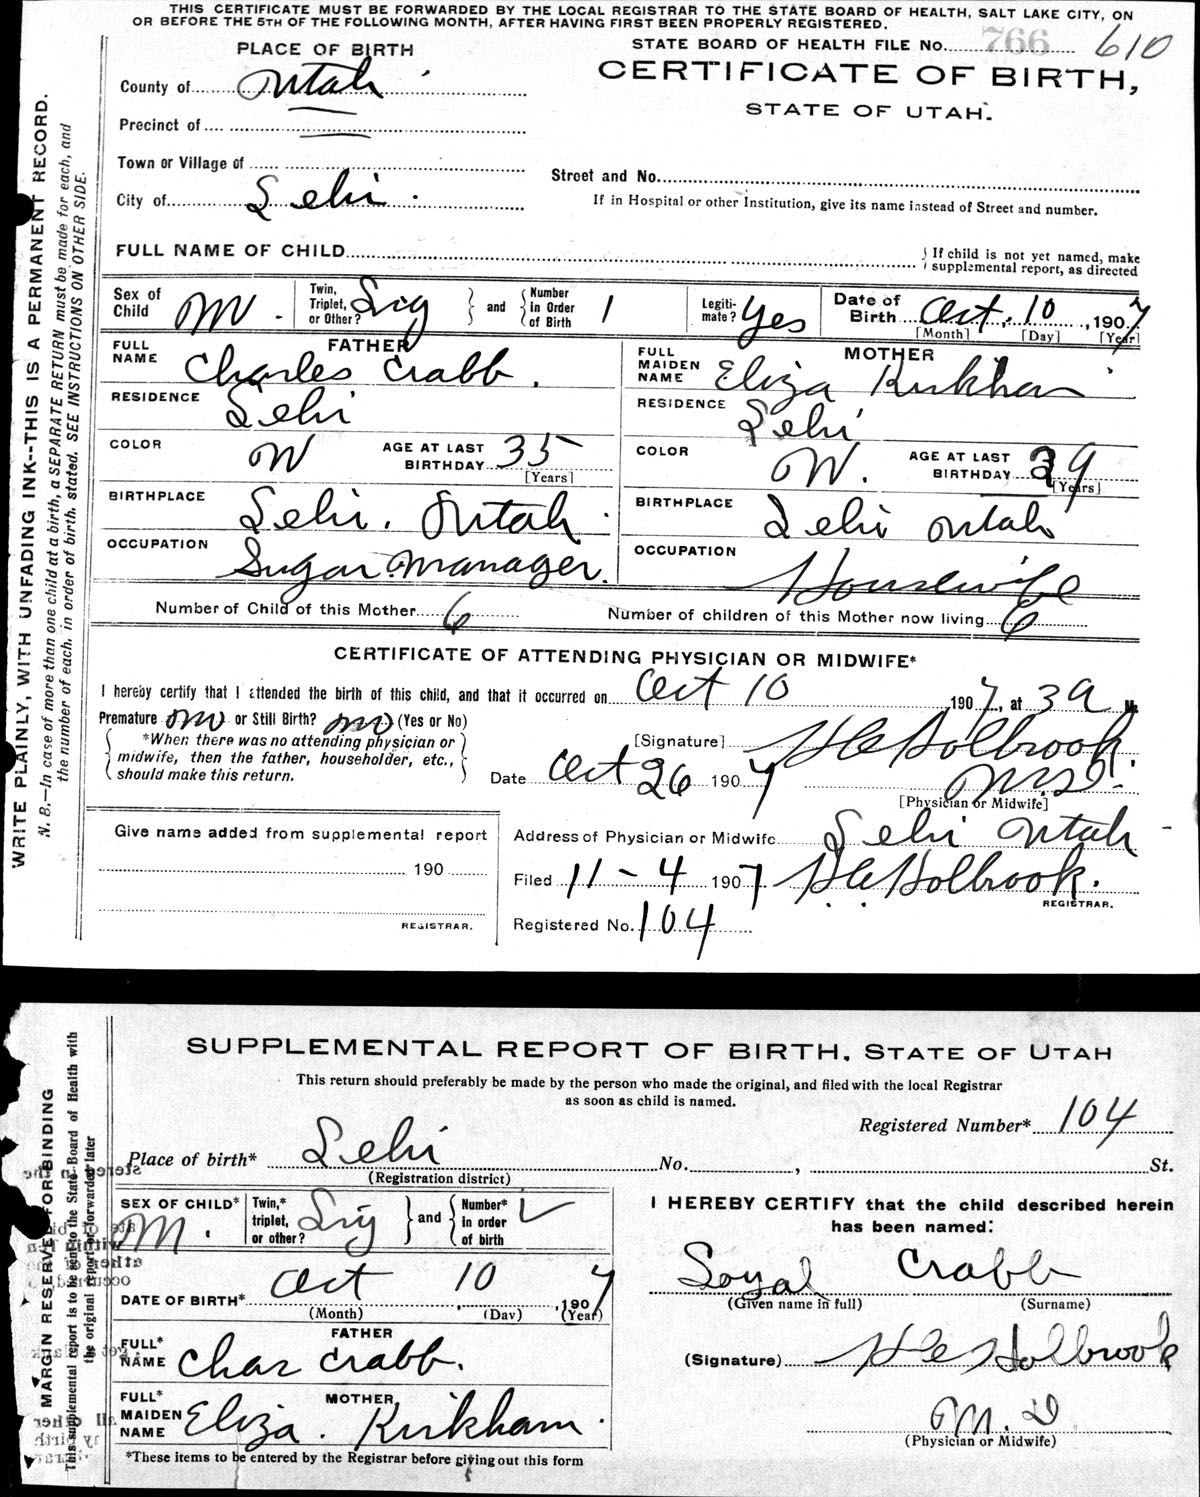 THIS CERTIFICATE MUST BE FORWARDED BY THE LOCAL REGISTRAR TO THE STATE BOARD OF HEALTH, SALT LAKE CITY, ON
OR BEFORE THE 5TH OF THE FOLLOWING MONTH, AFTER HAVING FIRST BEEN PROPERLY REGISTERED.
PLACE OF BIRTH
STATE BOARD OF HEALTH FILE No. 766 610
County of Utah
CERTIFICATE OF BIRTH,
STATE OF UTAH.
Precinct of
Town or Village of
Street and No.
City of Lehi.
If in Hospital or other Institution, give its name instead of Street and number.
FULL NAME OF CHILD
If child is not yet named, make supplemental report, as directed
Sex of Child M.
Twin, Triplet, or Other? Sig
and Number in Order of Birth 1
Legiti-mate? Yes
Date of Birth Oct. 10, 1907
[Month] [Day] [Year]
FATHER
FULL NAME Charles Crabb.
RESIDENCE Lehi
COLOR W
AGE AT LAST BIRTHDAY 35
[Years]
BIRTHPLACE Lehi. Utah.
OCCUPATION Sugar Manager.
MOTHER
FULL MAIDEN NAME Eliza Kirkham
RESIDENCE Lehi
COLOR W.
AGE AT LAST BIRTHDAY 39
[Years]
BIRTHPLACE Lehi Utah
OCCUPATION Housewife
Number of Child of this Mother 6
Number of children of this Mother now living 6
CERTIFICATE OF ATTENDING PHYSICIAN OR MIDWIFE*
I hereby certify that I attended the birth of this child, and that it occurred on Oct 10, 1907, at 3 a M.
Premature no or Still Birth? no (Yes or No)
*When there was no attending physician or midwife, then the father, householder, etc., should make this return.
[Signature] H C Holbrook. M.D.
Date Oct 26 1907
[Physician or Midwife]
Give name added from supplemental report
190
REGISTRAR.
Address of Physician or Midwife Lehi Utah
Filed 11-4 1907 H C Holbrook.
REGISTRAR.
Registered No. 104
WRITE PLAINLY, WITH UNFADING INK--THIS IS A PERMANENT RECORD.
N. B.—In case of more than one child at a birth, a SEPARATE RETURN must be made for each, and
the number of each, in order of birth, stated. SEE INSTRUCTIONS ON OTHER SIDE.
SUPPLEMENTAL REPORT OF BIRTH, STATE OF UTAH
This return should preferably be made by the person who made the original, and filed with the local Registrar
as soon as child is named.
Registered Number* 104
Place of birth* Lehi No. , St.
(Registration district)
SEX OF CHILD* M.
Twin,* triplet, or other? Sig
and Number* in order of birth
DATE OF BIRTH* Oct 10, 1907
(Month) (Day) (Year)
FATHER
FULL* NAME Chas Crabb.
MOTHER
FULL* MAIDEN NAME Eliza Kirkham.
*These items to be entered by the Registrar before giving out this form
I HEREBY CERTIFY that the child described herein
has been named:
Loyal Crabb
(Given name in full) (Surname)
(Signature) H C Holbrook
M. D
(Physician or Midwife)
MARGIN RESERVE FOR BINDING
This supplemental report is to be sent to the State Board of Health with
the original report or forwarded later